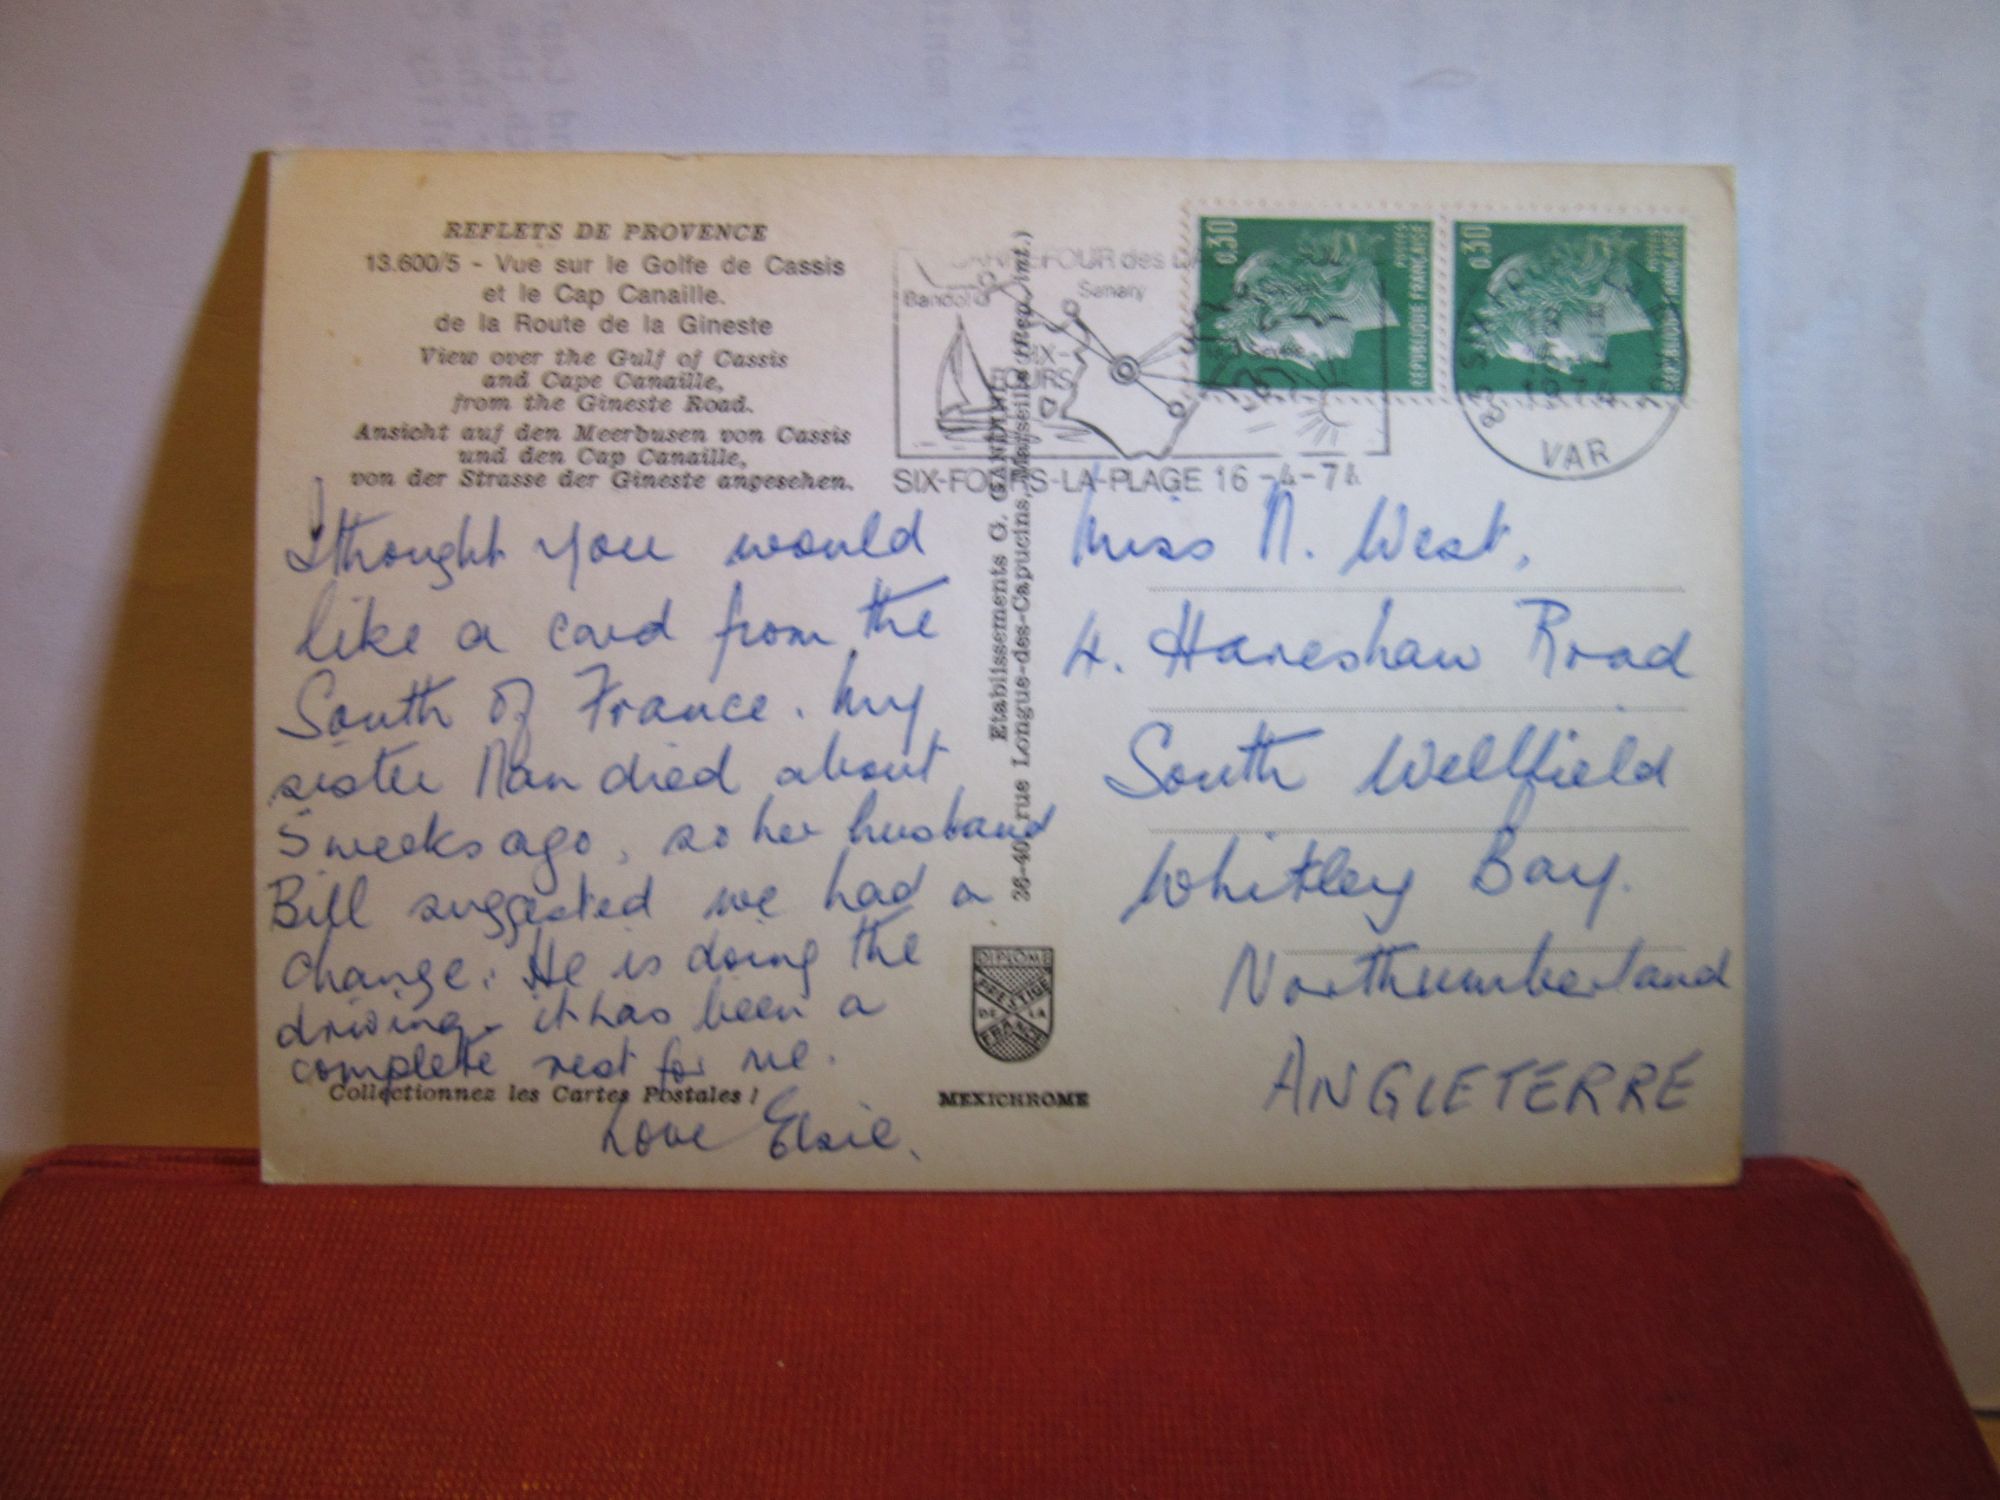 REFLETS DE PROVENCE
13.600/5 - Vue sur le Golfe de Cassis
et le Cap Canaille.
de la Route de la Gineste
View over the Gulf of Cassis
and Cape Canaille,
from the Gineste Road.
Ansicht auf den Meerbusen von Cassis
und den Cap Canaille,
von der Strasse der Gineste angesehen.
I thought you would
like a card from the
South of France. My
sister Nan died about
5 weeks ago, so her husband
Bill suggested we had a
change. He is doing the
driving - it has been a
complete rest for me.
Collectionnez les Cartes Postales !
Love Elsie.
Etablissements G. GANDINI
36-40, rue Longue-des-Capucins, Marseille (Rep. int.)
DIPLOME
PRESTIGE
DE LA
FRANCE
MEXICHROME
CARREFOUR des
Bandol
Sanary
SIX-
FOURS
SIX-FOURS-LA-PLAGE 16 -4-74
0.30
POSTES
REPUBLIQUE FRANCAISE
0.30
POSTES
REPUBLIQUE FRANCAISE
83 SIX
1974
VAR
Miss N. West,
4. Hareshaw Road
South Wellfield
Whitley Bay.
Northumberland
ANGLETERRE